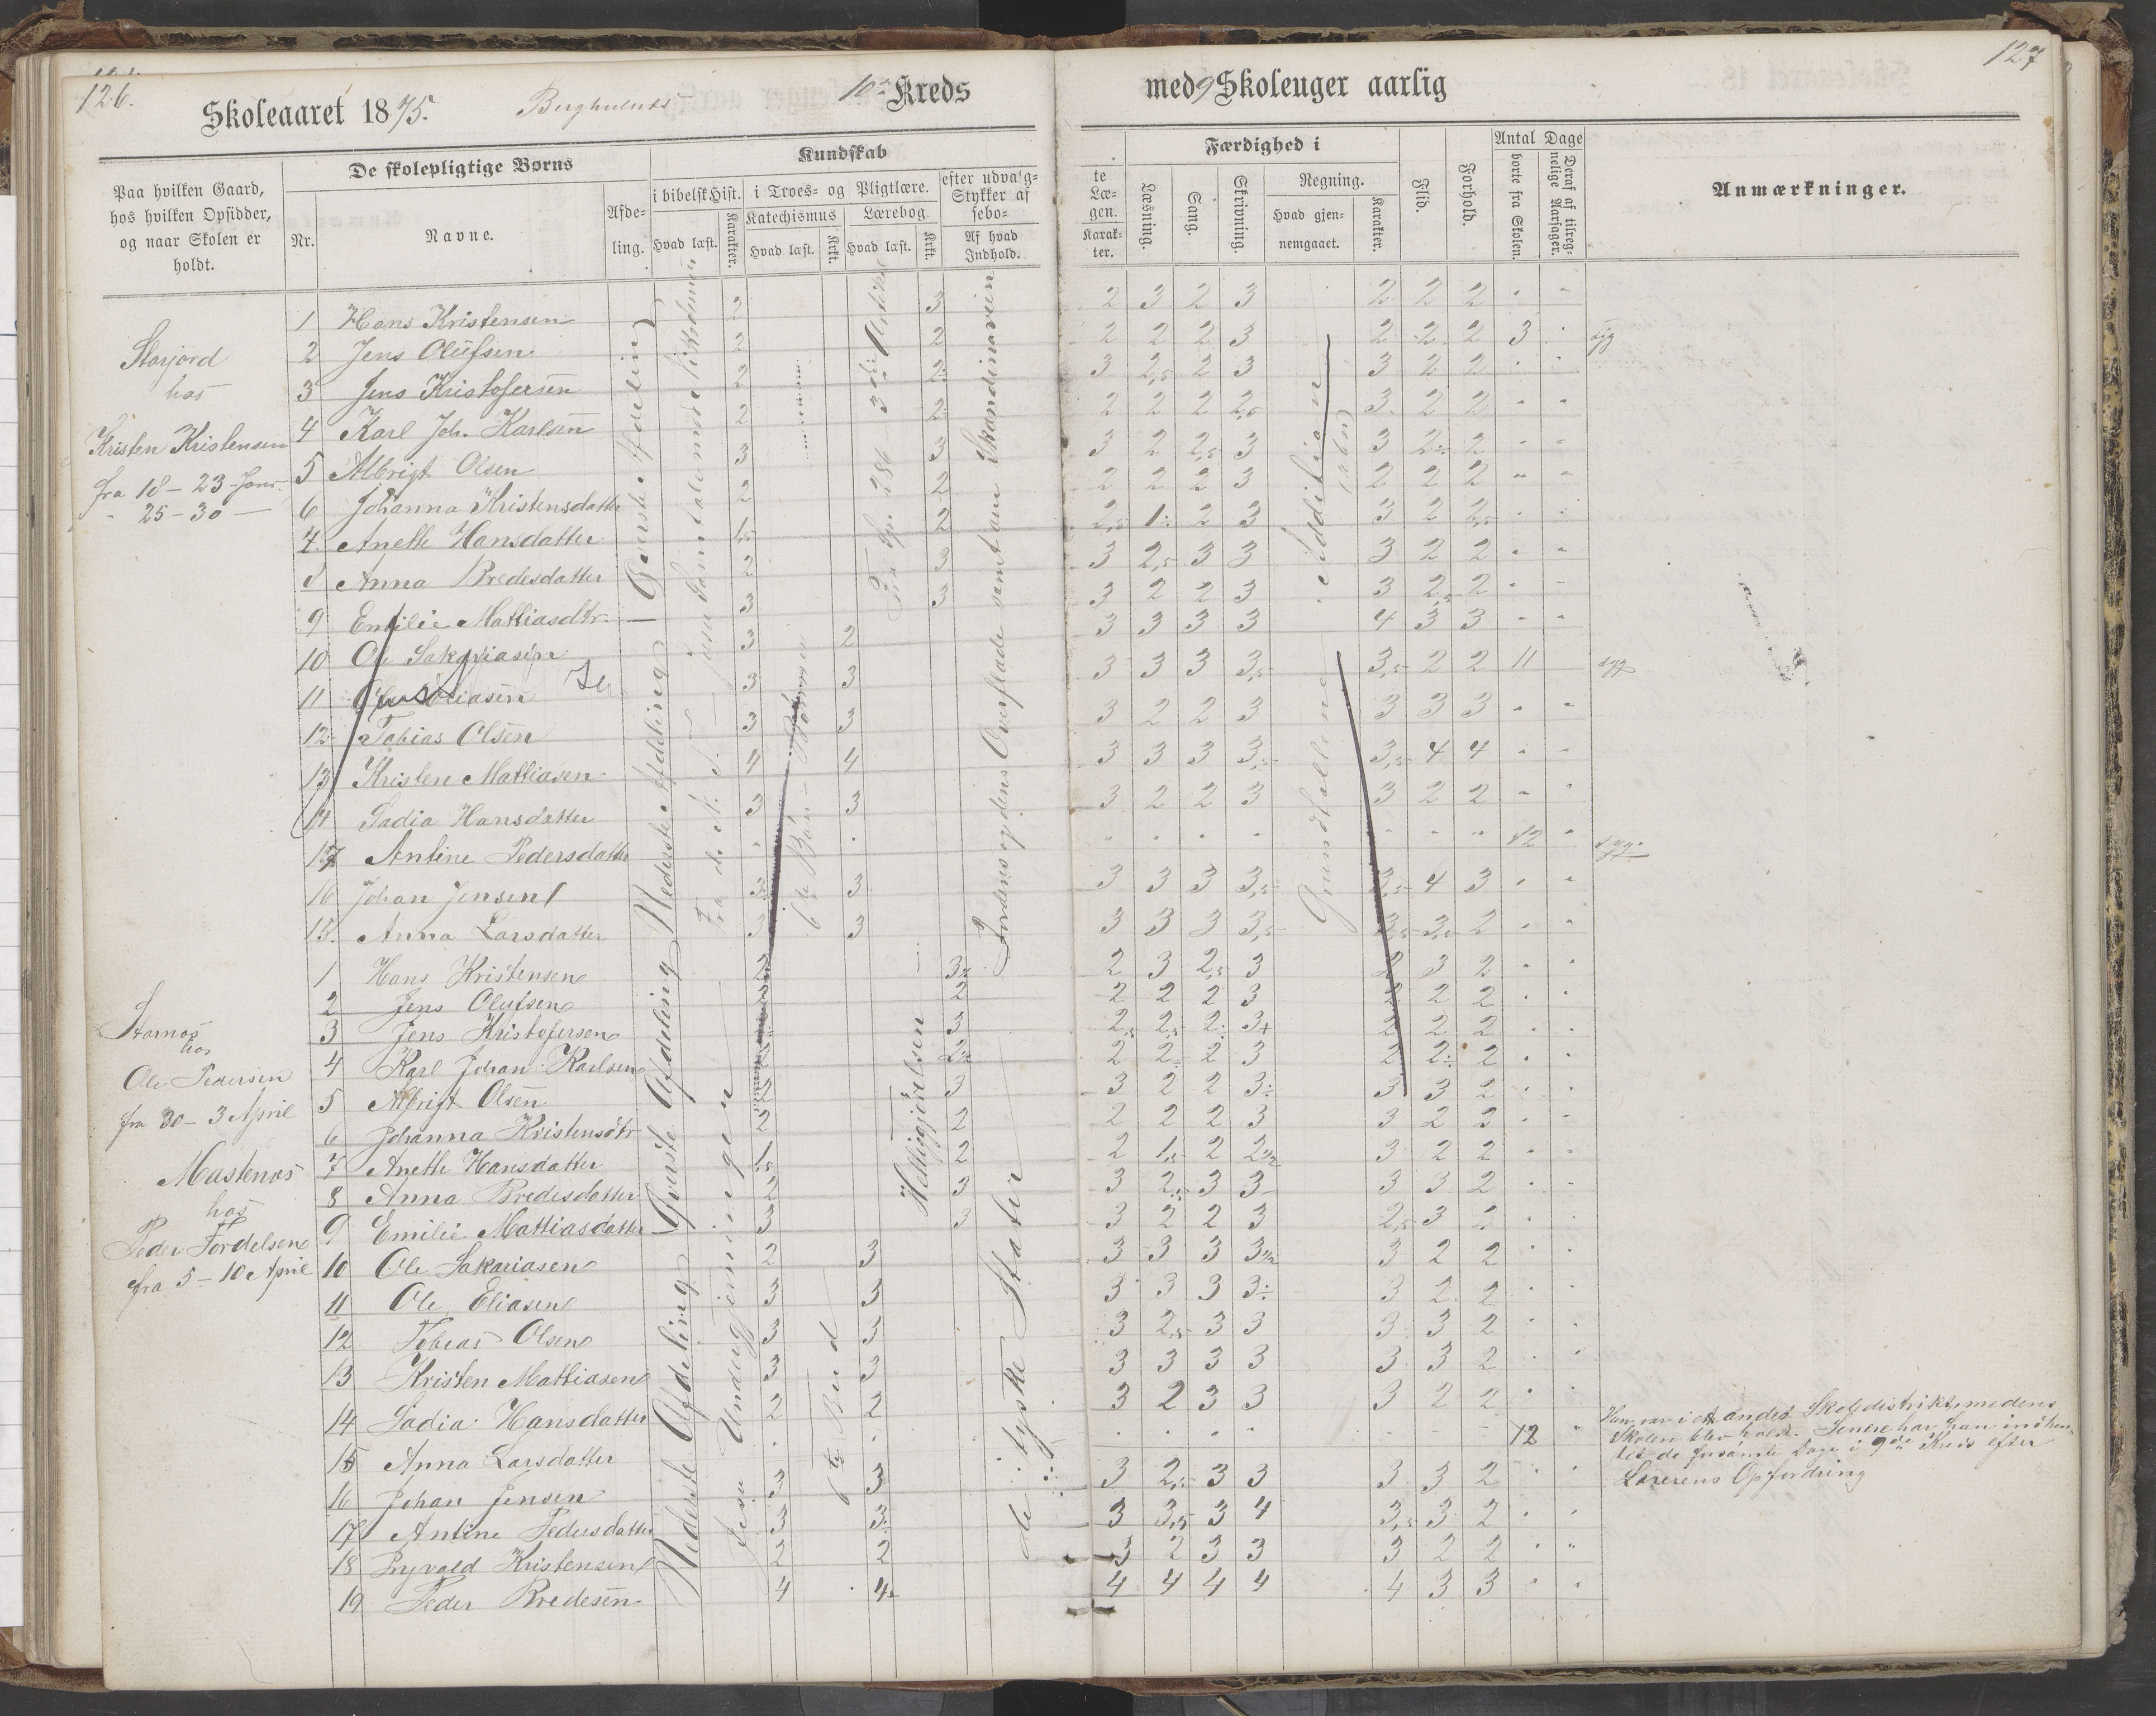 126.
Skoleaaret 1875.
10de Kreds
Paa hvilken Gaard, hos hvilken Opsidder, og naar Skolen er holdt.
De skolepligtige Børns
Nr.
Navne.
Afdeling.
Kundskab
i bibelsk Hist.
Hvad læst.
Karakter.
i Troes- og Pligtlære.
Katechismus
Hvad læst.
Krkt.
Lærebog.
Hvad læst.
Krkt.
efter udvalg-
Stykker af
sebo-
Af hvad Indhold.
Storjord
hos
Kristen Kristensen
fra 18 - 23 Janr.
" 25 - 30 —
1 Hans Kristensen 2 3
2 Jens Olufsen 2 2
3 Jens Kristofersen 2 2
4 Karl Joh. Karlsen 2 2
5 Albrigt Olsen 3 3
6 Johanna Kristensdatter 2 2
7 Anette Hansdatter 1,5 2
8 Anna Bredesdatter 2 3
9 Emilie Mattiasdtr. 3 3
10 Ole Sakariasen 3 2
11 Ole Eliasen 3 3
12 Tobias Olsen 3 3
13 Kristen Mattiasen 4 4
14 Sadia Hansdatter 3 3
17 Antine Pedersdatter
16 Johan Jensen 3 3
15. Anna Larsdatter 3 3
Øverste Afdeling
Nederste Afdeling
Jordens og dens Overflade samt om Skandinavien
Stamnes
hos
Ole Pedersen
fra 30 - 3 April
Mastenes
hos
Peder Tordelsen
fra 5 - 10 April
1 Hans Kristensen
2 Jens Olufsen 2
3 Jens Kristofersen 3
4 Karl Johan Karlsen
5 Albrigt Olsen 2 3
6 Johanna Kristensdtr 2 2
7 Anette Hansdatter 1,5 2
8 Anna Bredesdatter 2 3
9 Emilie Mattiasdatter 3 3
10 Ole Sakariasen 2 3
11 Ole Eliasen 3 3
12 Tobias Olsen 3 3
13 Kristen Mattiasen 3 3
14 Sadia Hansdatter 2 2
15 Anna Larsdatter
16 Johan Jensen 3 3
17 Antine Pedersdatter 3 3
18 Pryvald Kristensen 2 2
19 Peder Bredesen 4 4
Øverste Afdeling
Nederste Afdeling
Jesu Undergjerninger
6te Bud
Helliggjørelsen
de tyske Stater
127
med 9 Skoleuger aarlig
te Læ-
gen.
Karakter.
Færdighed i
Læsning.
Sang.
Skrivning.
Regning.
Hvad gjennemgaaet.
Karakter.
Flid.
Forhold.
Antal Dage
borte fra Skolen.
Deraf af tilregnelige Aarsager.
Anmærkninger.
Addition
2 3 2 3 2 2 2
2 2 2 3 2 2 2 3 syg
3 2,5 2 3 3 2 2
2 2 2 2,5 3 2 2
3 2 2,5 3 3 2÷ 2
2 2 2 3 2 2 2
2,5 1÷ 2 3 3 2 2,5
3 2,5 3 3 3 2 2
3 2 2 3 3 2,5 2
3 3 3 3 4 3 3
3 3 3 3,5 3,5 2 2 11 syg
3 2 2 3 3 3 3
3 3 3 3,5 3,5 4 4
3 2 2 3 3 2 2
12 syg.
3 3 3 3,5 3,5 4 3
3 3 3 3,5 3,5 3,5 2
2 3 2,5 3 2 3 2
2 2 2 3 2 2 2
2,5 2,5 2 3+ 2 2 2
2 2 2 3 2 2÷ 2
3 2 2 3÷ 3 3 2
2 2 2 3 3 2 2
2 1,5 2 2½ 3 2 2
3 2,5 3 3 3 3 2
3 2 2 3 2,5 3 2
3 3 3 3½ 3 2 2
3 3 3 3÷ 3 2 2
3 2,5 3 3 3 3 2
3 3 3 3 3 3 2
3 2 3 3 3 2 2
12 Hun var i et andet Skoledistrikt, medens
Skolen blev holdt. Senere har hun indhen-
tet de forsømte Dage i 9de Kreds efter
Lærerens Opfordring
3 2,5 3 3 3 3 2
3 3,5 3 4 3,5 3 2
3 2 3 3 3 2 2
4 4 4 4 4 3 3